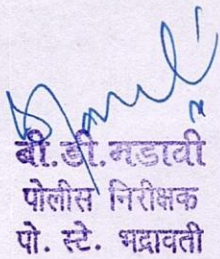 बी.डी.मडावी
पोलीस निरीक्षक
पो. स्टे. भद्रावती